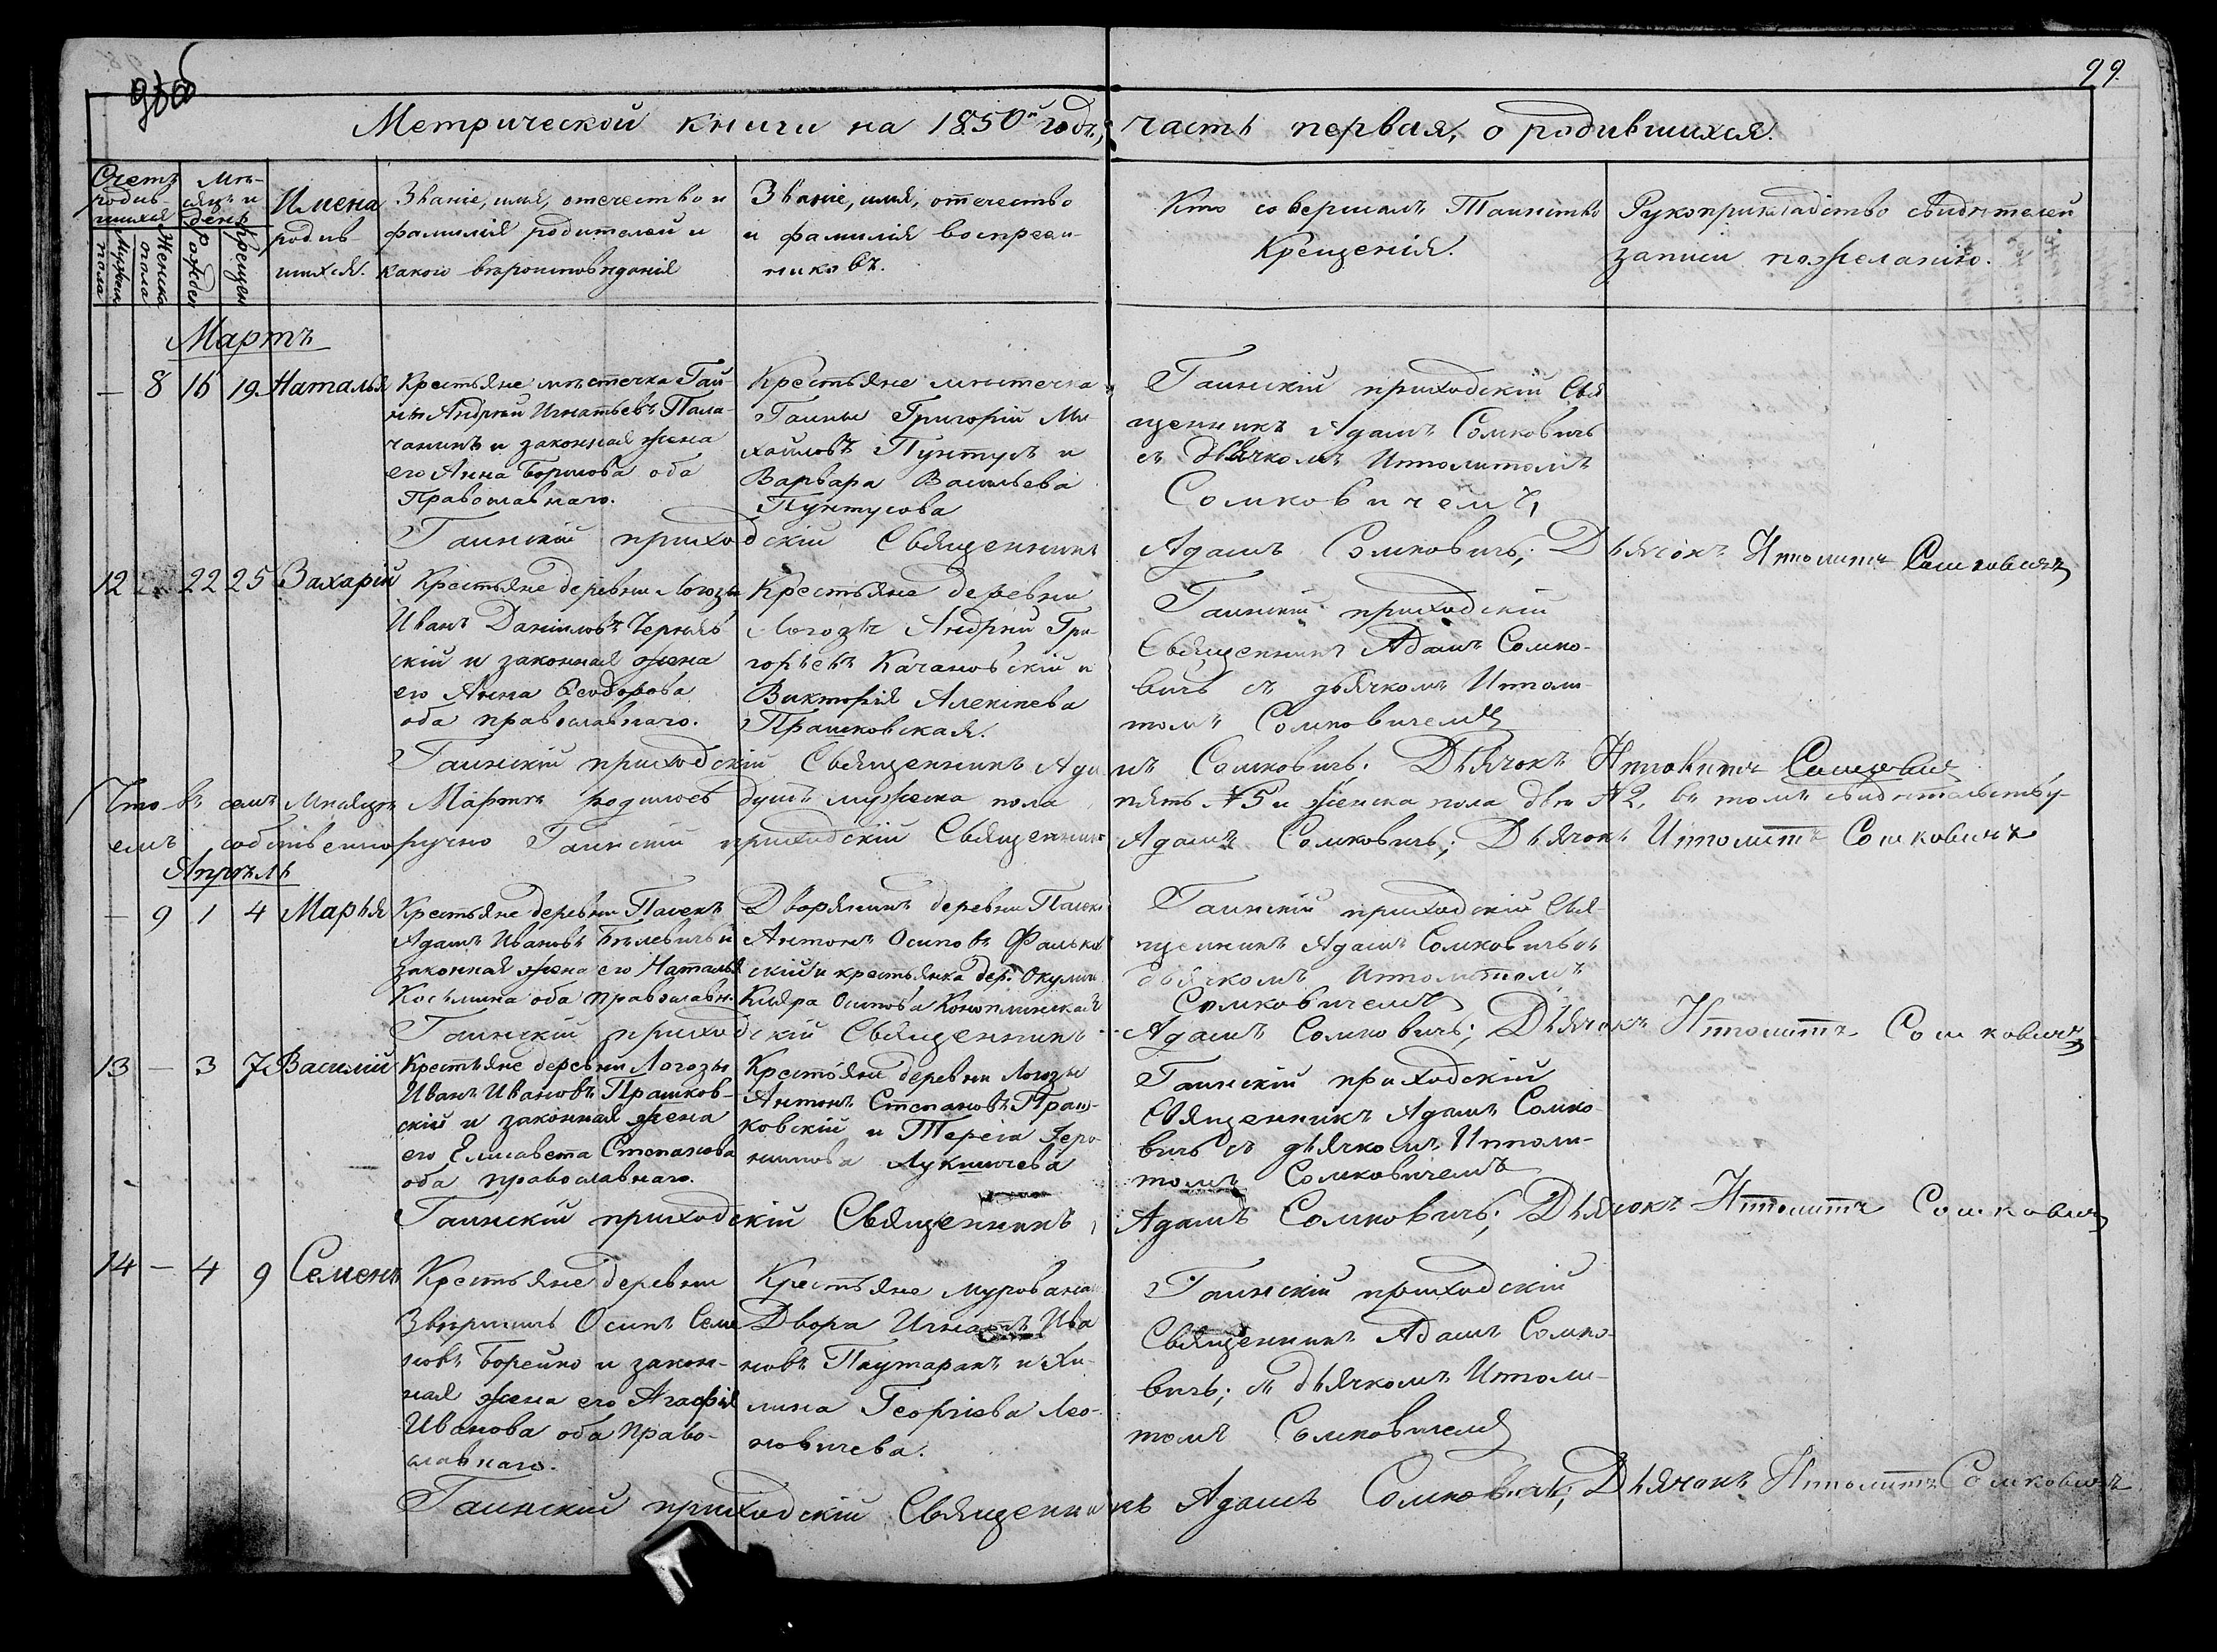 99.
Метрической книги на 1850й годъ, часть первая, о родившихся.
Счетъ родив-шихся
Мужеска пола
Женска пола
Мѣ-сяцъ и день
Рожден
Крещен
Имена
родив-
шихся.
Званіе, имя, отечество и
фамилія родителей и
какого вѣроисповѣданія
Званіе, имя, отечество
и фамилія воспреем-
никовъ.
Кто совершалъ Таинство
Крещенія.
Рукоприкладство свидѣтелей
записи по желанію.
Мартъ
— 8 16 19 Наталья
Крестьяне мѣстечка Гай-
ны Андрей Игнатьевъ Пала-
чанинъ и законная жена
его Анна Борисова оба
Православнаго.
Крестьяне мѣстечка
Гаины Григорій Ми-
хайловъ Пунтусъ и
Варвара Васильева
Пунтусова
Гаинскій приходскій Свя
щенникъ Адамъ Сомковичъ
съ дьячкомъ Ипполитомъ
Сомковичемъ,
Гаинскій приходскій Священникъ Адамъ Сомковичъ; Дьячокъ Ипполитъ Сомковичъ
12 22 25 Захарій
Крестьяне деревни Логозы
Иванъ Даниловъ Черняв
скій и законная жена
его Анна Ѳеодорова
оба православнаго.
Крестьяне деревни
Логозы Андрей Гри-
горьевъ Качановскій и
Викторія Алексіева
Прашковская.
Гаинскій приходскій
Священникъ Адамъ Сомко-
вичъ съ дьячкомъ Ипполи-
томъ Сомковичемъ
Гаинскій приходскій Священникъ Адамъ Сомковичъ; Дьячокъ Ипполитъ Сомковичъ
Что въ семъ Мѣсяцѣ Мартѣ родилось душъ мужеска пола пять №5 и женска пола двѣ №2, въ томъ свидѣтельству-
емъ собственноручно Гаинскій приходскій Священникъ Адамъ Сомковичъ; Дьячокъ Ипполитъ Сомковичъ
Апрѣль
— 9 1 4 Марья
Крестьяне деревни Пасекъ
Адамъ Ивановъ Бѣлевичъ и
законная жена его Наталья
Косьмина оба православн.
Дворянинъ деревни Пасекъ
Антонъ Осиповъ Фальков
скій и крестьянка дер.
Кляра Осипова Коноплинская
Гаинскій приходскій Свя-
щенникъ Адамъ Сомковичъ съ
дьячкомъ Ипполитомъ
Сомковичемъ
Гаинскій приходскій Священникъ - Адамъ Сомковичъ; Дьячокъ Ипполитъ Сомковичъ
13 — 3 7 Василій
Крестьяне деревни Логозы
Иванъ Ивановъ Прашков-
скій и законная жена
его Елисавета Степанова
оба православнаго.
Крестьяне деревни Логозы
Антонъ Степановъ Праш-
ковскій и Тереса Іеро-
нимова Лукшичева
Гаинскій приходскій
Священникъ Адамъ Сомко-
вичъ съ дьячкомъ Ипполи-
томъ Сомковичемъ
Гаинскій приходскій Священникъ, Адамъ Сомковичъ; Дьячокъ Ипполитъ Сомковичъ
14 — 4 9 Семенъ
Крестьяне деревни
Осипъ Семе
новъ Борейко и закон-
ная жена его Агафія
Иванова оба Право-
славнаго.
Крестьяне мурована
Двора Игнатъ Ива
новъ Паутаракъ и Хи-
лина Георгіева Лео-
новичева.
Гаинскій приходскій
Священникъ Адамъ Сомко-
вичъ; съ дьячкомъ Ипполи-
томъ Сомковичемъ
Гаинскій приходскій Священникъ Адамъ Сомковичъ; Дьячокъ Ипполитъ Сомковичъ